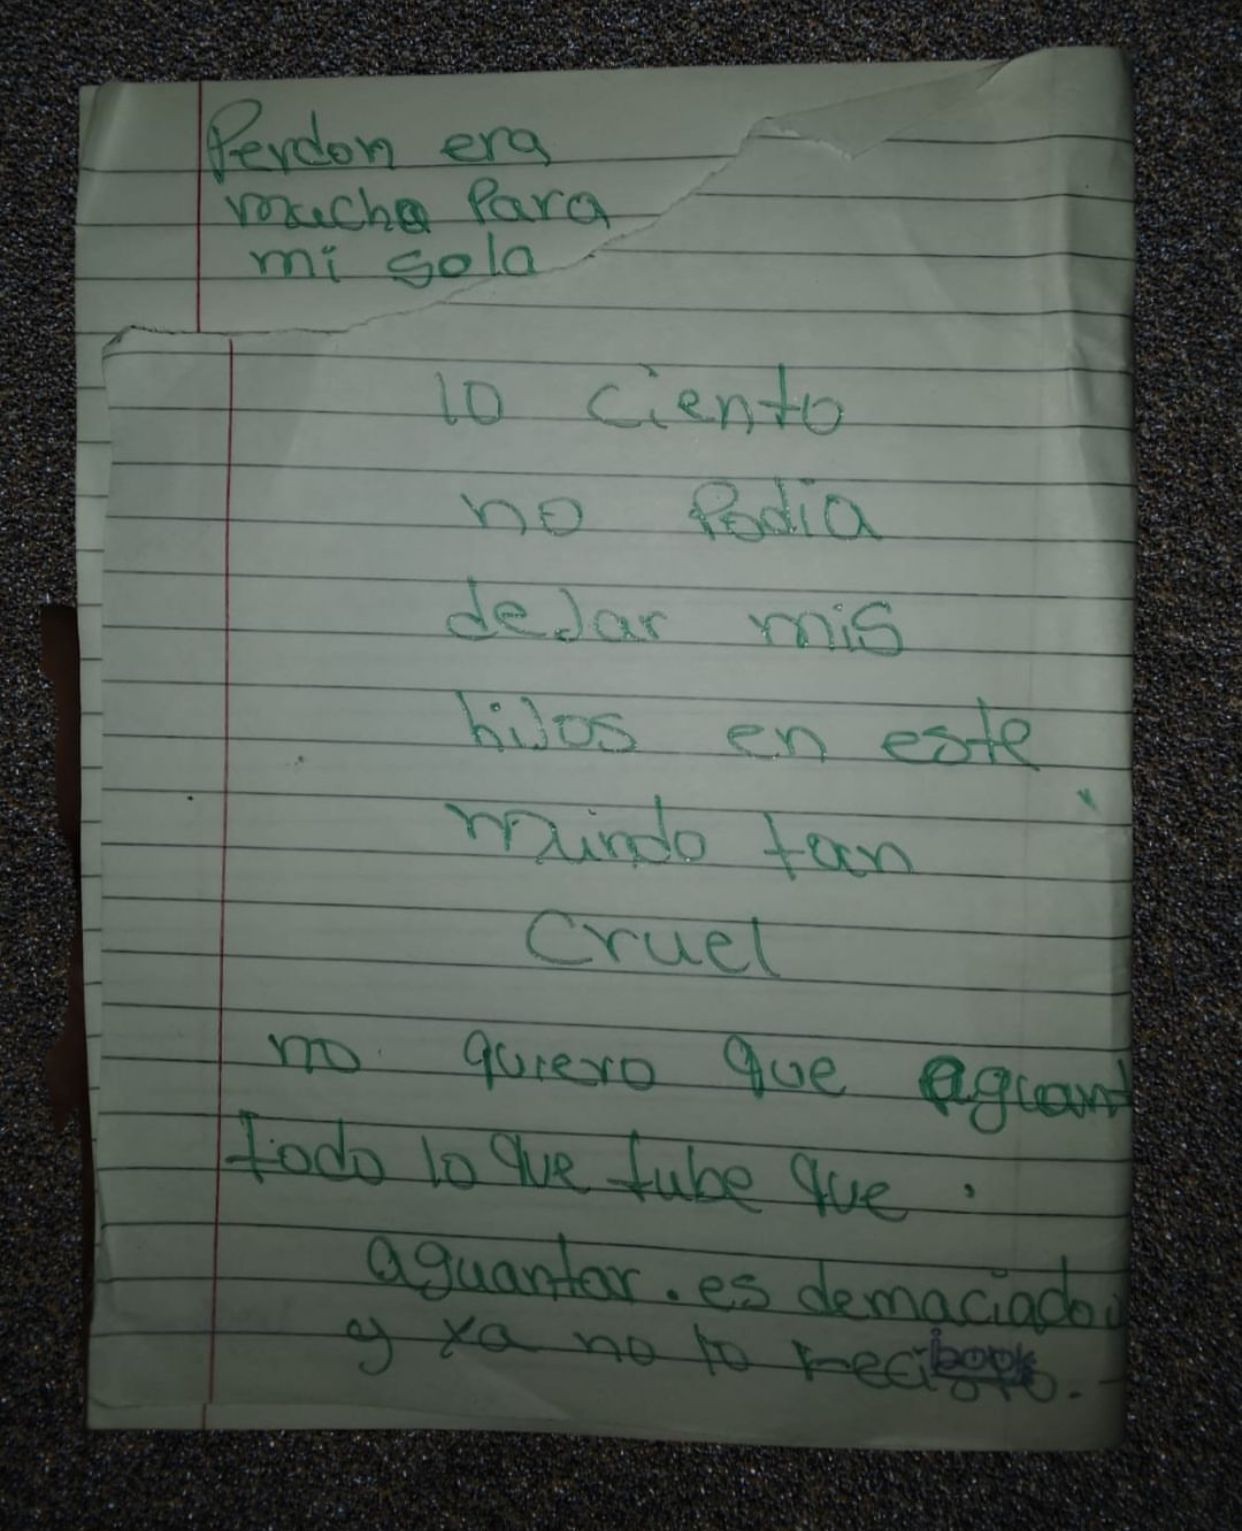 Perdon era
mucho Para
mi sola
lo ciento
no Podia
deJar mis
hiJos en este
mundo tan
Cruel
no quiero que aguant
todo lo que tube que
aguantar. es demaciado
y ya no lo